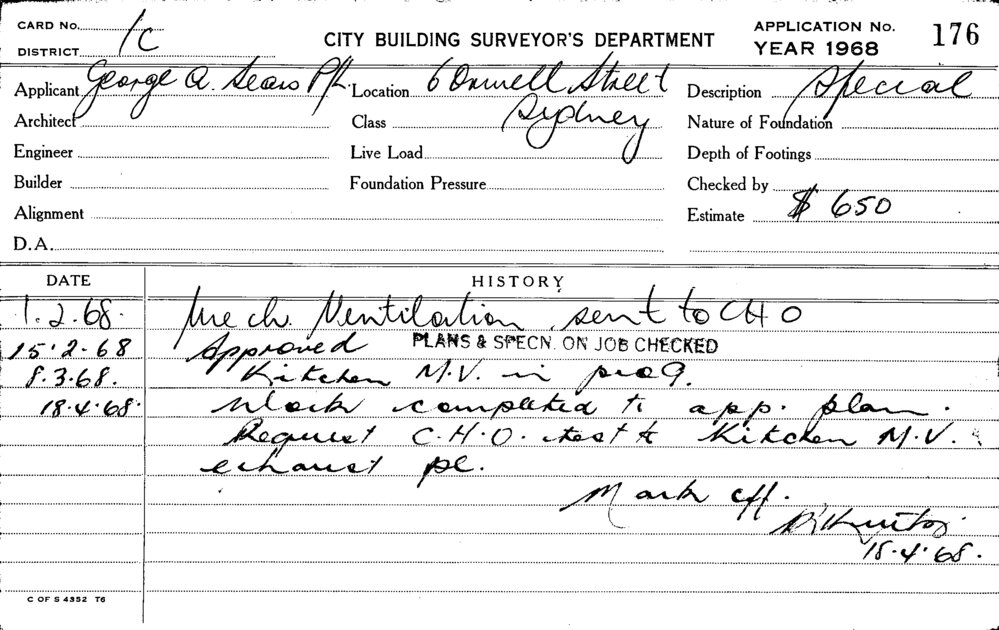 CARD No. 1c
DISTRICT
CITY BUILDING SURVEYOR'S DEPARTMENT
APPLICATION No. 176
YEAR 1968
Applicant George A. Sears P/L. Location 6 Orwell Street Description Special
Architect Class Sydney Nature of Foundation
Engineer Live Load Depth of Footings
Builder Foundation Pressure Checked by
Alignment Estimate $ 650
D.A.
DATE HISTORY
1.2.68. Mech. Ventilation sent to CHO
15.2.68 Approved PLANS & SPECN. ON JOB CHECKED
8.3.68. Kitchen M.V. in prog.
18.4.68. Work completed to app. plan.
Request C.H.O. test to Kitchen M.V.
exhaust pl.
Mark off.
18.4.68.
C OF S 4352 T6